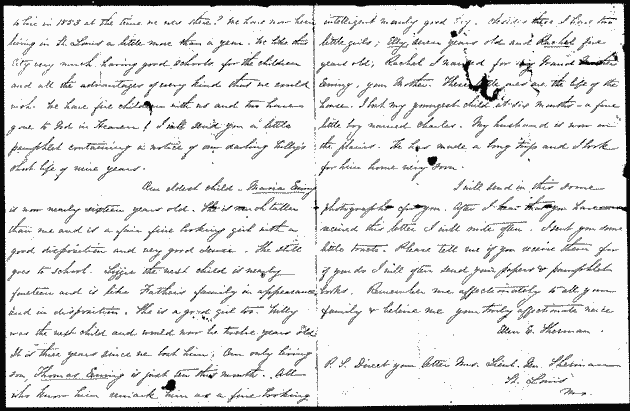 to live in 1853 at the time we were there? We have now been
living in St. Louis a little more than a year. We like this
City very much, having good schools for the children
and all the advantages of every kind that we could
wish. We have five children with us and two have
gone to God in Heaven! I will send you a little
pamphlet containing a notice of our darling Willy's
short life of nine years.
Our eldest child - Maria Ewing
is now nearly sixteen years old. She is much taller
than me and is a fair fine looking girl with a
good disposition and very good sense. She still
goes to school. Lizzie the next child is nearly
fourteen and is like Father's family in appearance
and in disposition. She is a good girl too. Willy
was the next child and would now be twelve years old.
It is three years since we lost him; Our only living
son, Thomas Ewing is just ten this month. All
who know him remark him as a fine looking
intelligent manly good boy. Besides these I have two
little girls; Elly seven years old and Rachel five
years old; Rachel I named for my Grand
Ewing, your Mother. These are the life of the
house. I but my youngest child is six months - a fine
little boy named Charles. My husband is now on
the plains. He has made a long trip and I look
for him home very soon.
I will send in this some
photographs for you. After I hear that you have
received this letter I will write often. I sent you some
little tracts. Please tell me if you receive them for
if you do I will often send you papers & pamphlet
books. Remember me affectionately to all your
family & believe me your truly affectionate niece
Ellen E. Sherman.
P. S. Direct your letter Mrs. Lieut. Gen. Sherman
St. Louis
Mo.